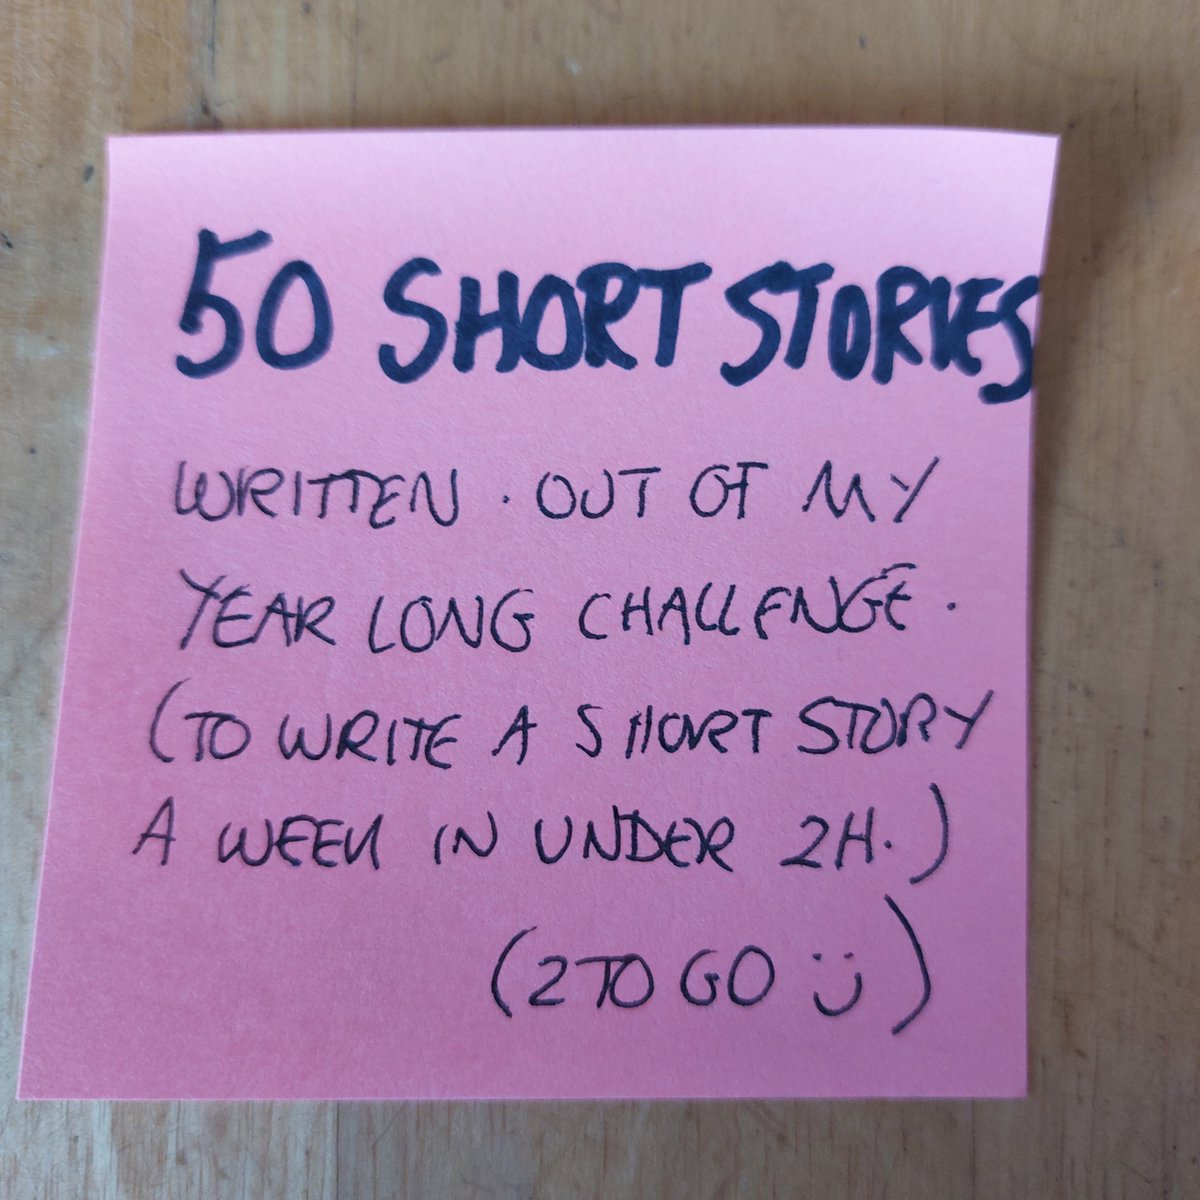 50 SHORT STORIES
WRITTEN . OUT OF MY
YEAR LONG CHALLENGE .
(TO WRITE A SHORT STORY
A WEEK IN UNDER 2H.)
(2 TO GO :))